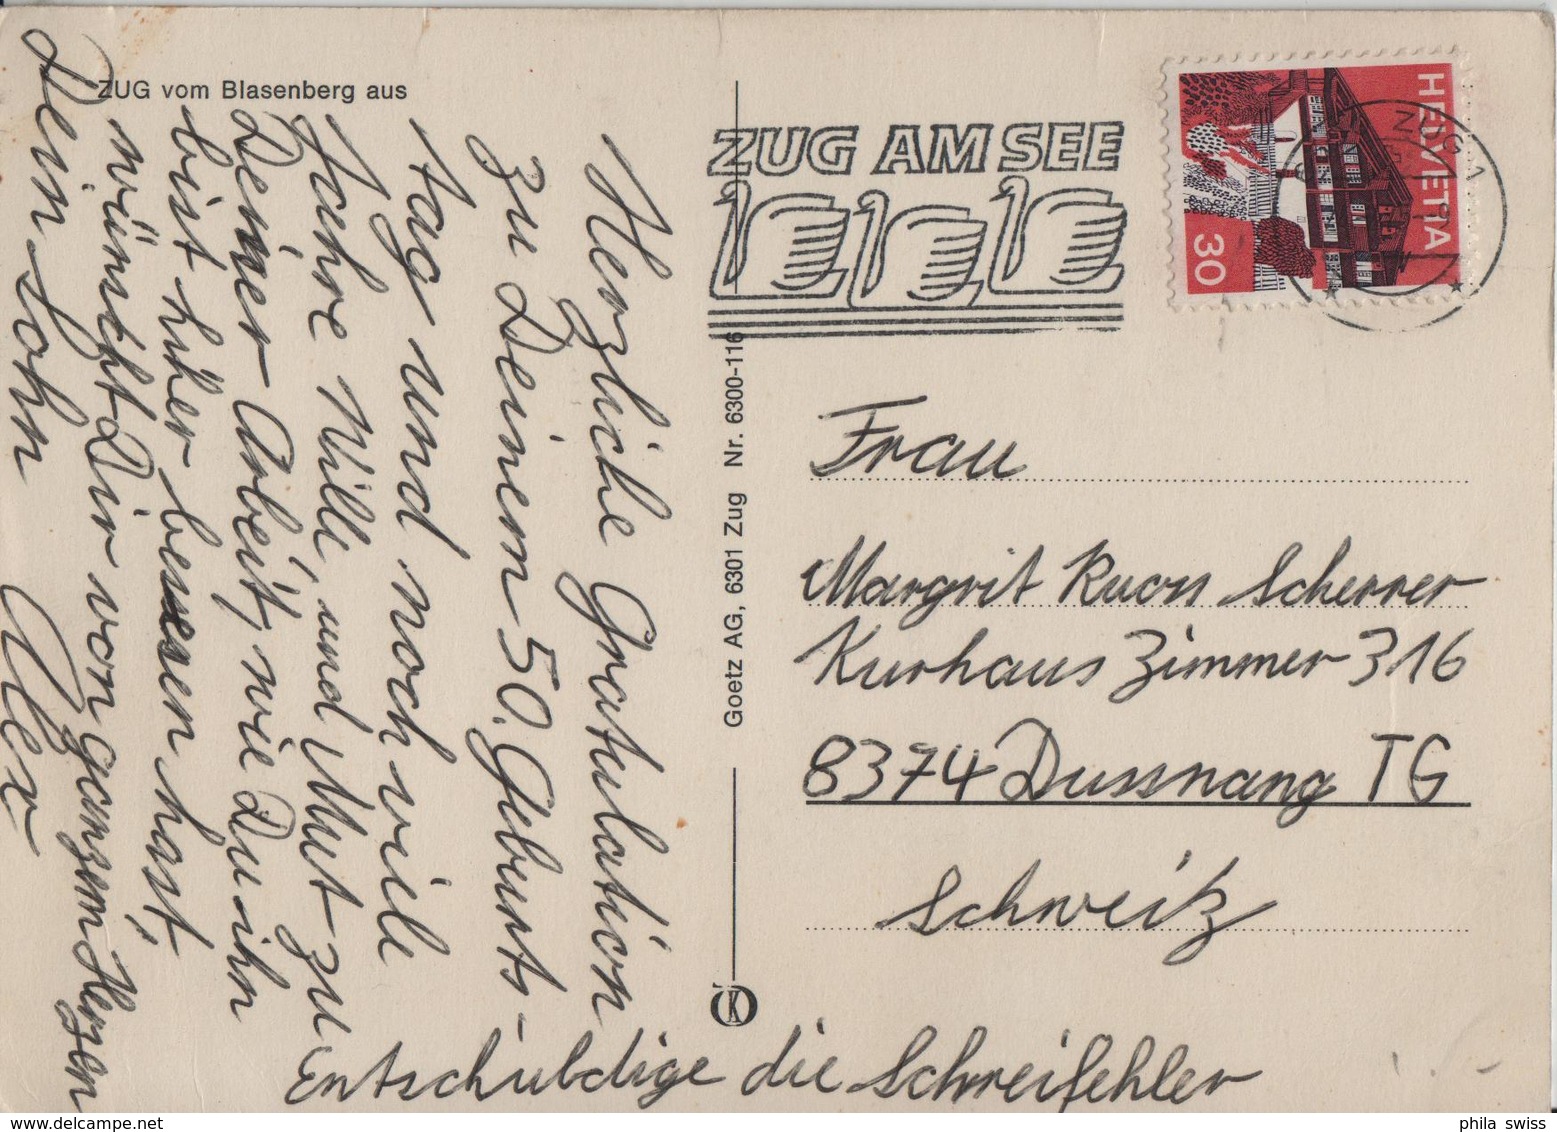 ZUG vom Blasenberg aus
Herzliche Gratulation
zu Deinem 50. Geburts-
tag und noch viele
Jahre Wille, und Mut zu
Deiner Arbeit, wie Du ihn
bist hüer bessen hast,
wünscht Dir von ganzem Herzen
Dein Sohn
Entschuldige die Schreifehler
Goetz AG, 6301 Zug Nr. 6300-116
ZUG AM SEE
HELVETIA
30
Frau
Margrit Ruoss Scherrer
Kurhaus Zimmer 316
8374 Dussnang TG
Schweiz
phila swiss